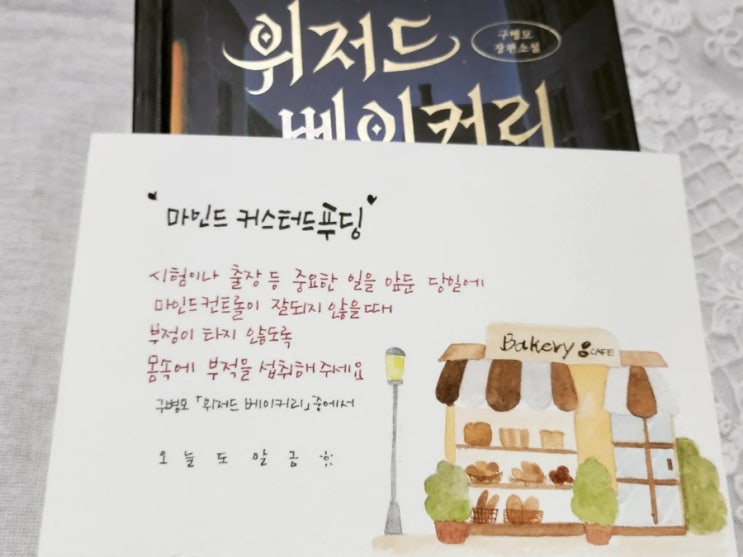 위저드
구병모
장편소설
베이커리
"마인드 커스터드푸딩"
시험이나 출장 등 중요한 일을 앞둔 당일에
마인드컨트롤이 잘되지 않을때
부정이 타지 않도록
몸속에 부적을 섭취해주세요
구병모 「위저드 베이커리」중에서
오늘도 맑음
Bakery CAFE